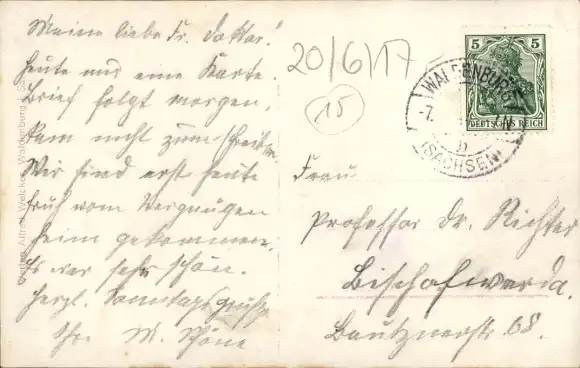 Meine liebe Fr. Doktor!
heute nur eine Karte.
Brief folgt morgen,
kam nicht zum schreiben.
Wir sind erst heute
früh vom Vergnügen
heim gekommen.
Es war sehr schön.
Herzl. Sonntagsgrüße
Ihre M. Schöne
20/6/17
15
5 5
DEUTSCHES REICH
WALDENBURG
-7.
b
(SACHSEN)
Frau
Professor Dr. Richter
Bischofwerda.
Bautznerstr. 68.
Welcker, Waldenburg